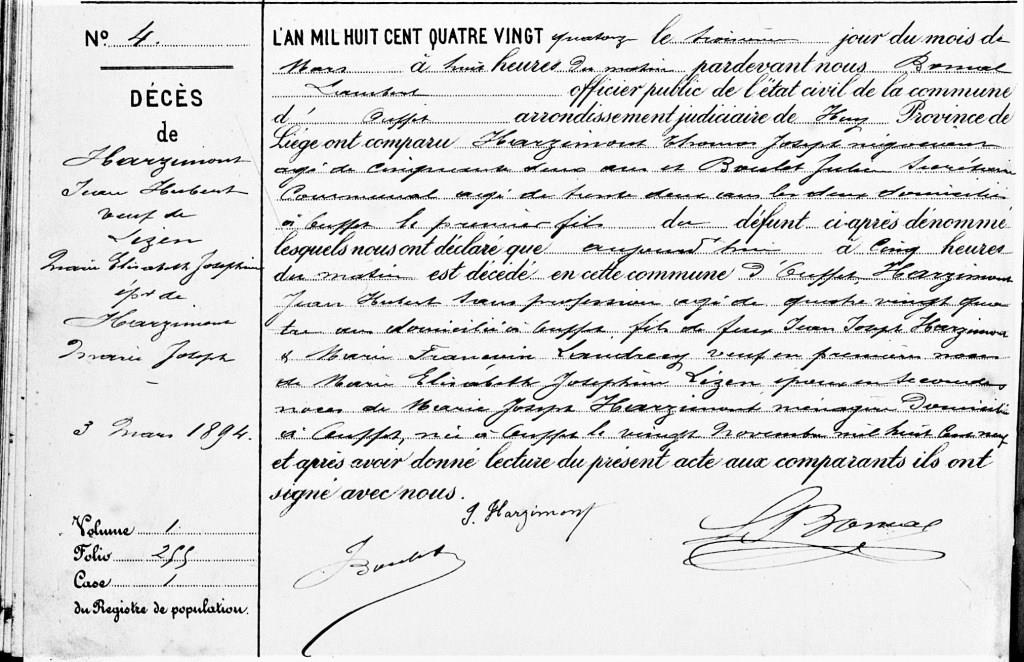 N° 4.
DÉCÈS
de
Harzimont
Jean Hubert
veuf de
Lizen
Marie Elisabeth Josephine
épx de
Harzimont
Marie Joseph
3 Mars 1894.
Volume 1
Folio 255
Case 1
du Registre de population.
L'AN MIL HUIT CENT QUATRE VINGT quatorz le troisième jour du mois de
Mars à huit heures du matin pardevant nous Bomal
Lambert officier public de l'état civil de la commune
d' Ouffet arrondissement judiciaire de Huy Province de
Liége ont comparu Harzimont Thomas Joseph négociant
agé de cinquante deux ans et Boulet Julien Secrétaire
Communal agé de trente deux ans les deux domiciliés
à Ouffet le premier fils du défunt ci-après dénommé
lesquels nous ont déclaré que aujourd'hui à Cinq heures
du matin est décédé en cette commune d'Ouffet, Harzimont
Jean Hubert sans profession agé de quatre vingt qua
tre ans domicilié à Ouffet, fils de feux Jean Joseph Harzimont
& Marie Landrecy veuf en premières noces
de Marie Elisabeth Josephine Lizen époux en secondes
noces de Marie Joseph Harzimont ménagère Domiciliée
à Ouffet, née à Ouffet le vingt Novembre mil huit Cent neuf
et après avoir donné lecture du présent acte aux comparants ils ont
signé avec nous.
J. Harzimont
L Bomal
J Boulet